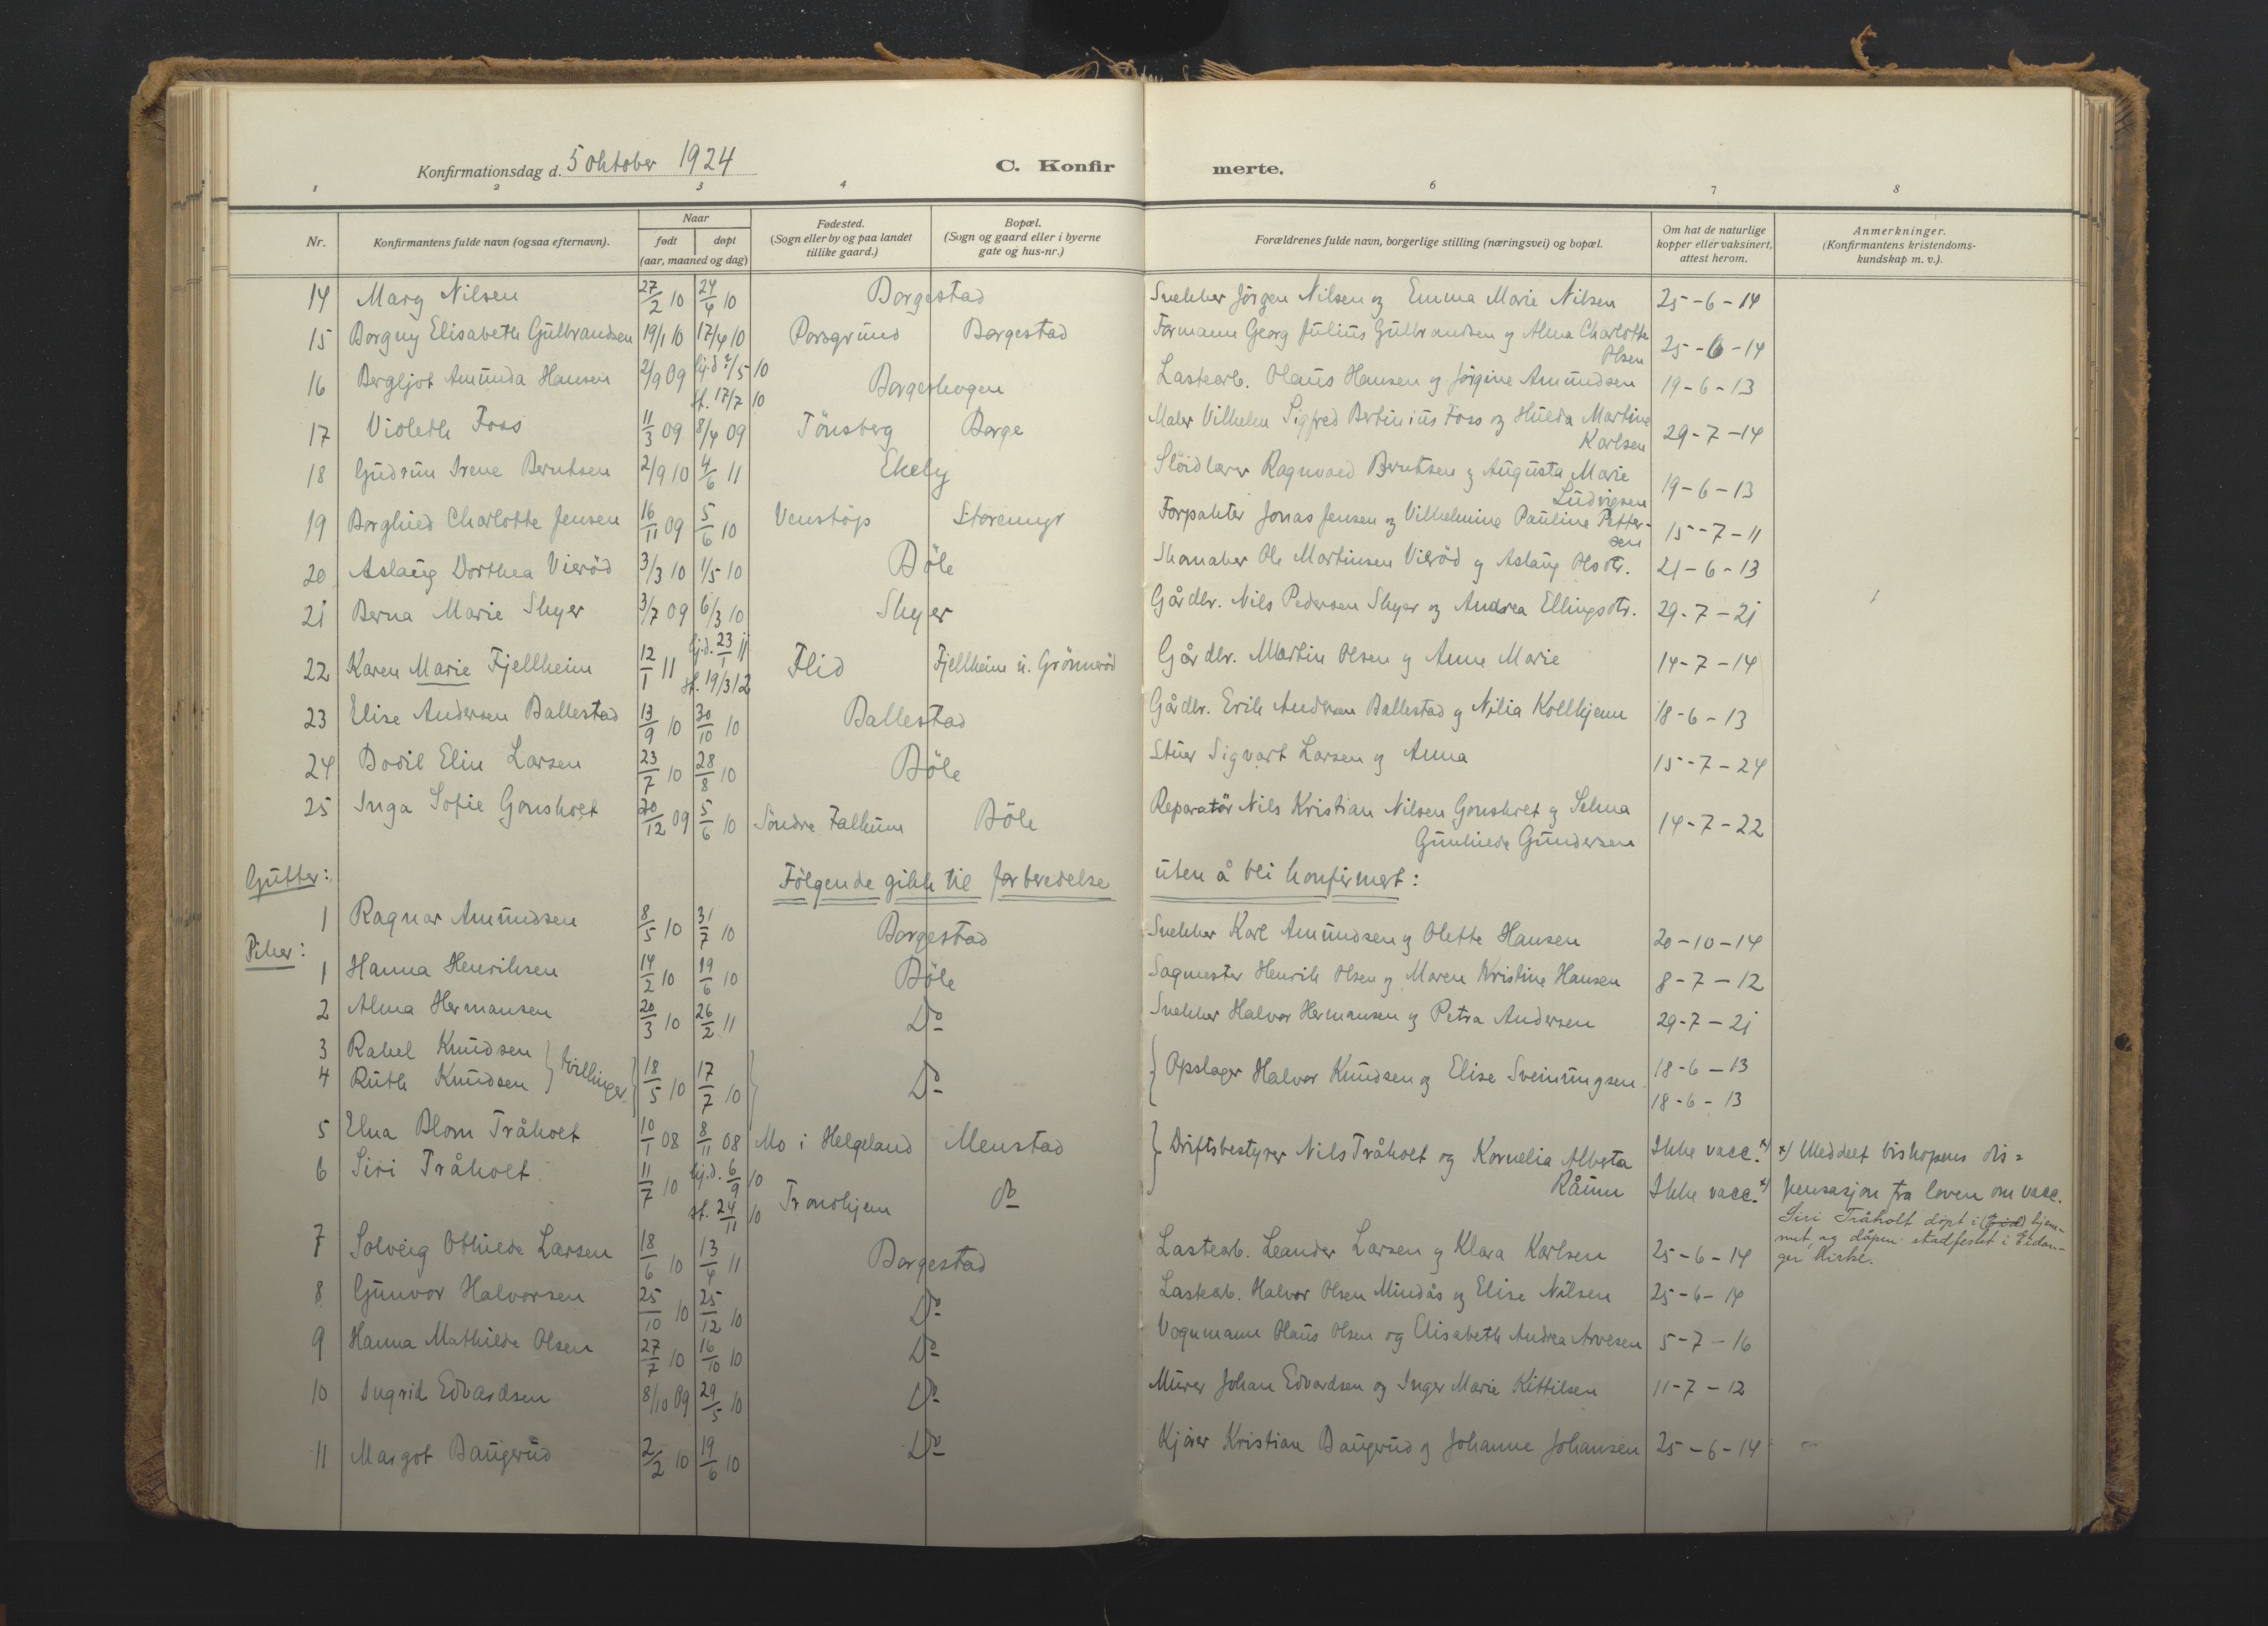 Konfirmationsdag d. 5 oktober 1924 C. Konfir merte.
1 2 3 4 6 7 8
Nr. Konfirmantens fulde navn (ogsaa efternavn). Naar født døpt (aar, maaned og dag) Fødested. (Sogn eller by og paa landet tillike gaard.) Bopæl. (Sogn og gaard eller i byerne gate og hus-nr.) Forældrenes fulde navn, borgerlige stilling (næringsvei) og bopæl. Om hat de naturlige kopper eller vaksinert, attest herom. Anmerkninger. (Konfirmantens kristendomskundskap m. v.).
14 Mary Nilsen 27/2 10 24/4 10 Borgestad Snekker Jörgen Nilsen og Emma Marie Nilsen 25-6-14
15 Borgny Elisabeth Gulbrandsen 19/1 10 17/4 10 Porsgrund Borgestad Formann Georg Julius Gulbrandsen og Alma Charlotte
Olsen 25-6-14
16 Bergljot Amunda Hansen 2/9 09 hj.d 1/5 10
st. 17/7 10 Borgeskogen Lastearb. Olaus Hansen og Jörgine Amundsen 19-6-13
17 Violeth Foss 11/3 09 8/4 09 Tönsberg Borge Maler Vilhelm Sigfred Bertinius Foss og Hulda Martine
Karlsen 29-7-14
18 Gudrun Irene Berntsen 2/9 10 4/6 11 Ekely Slöidlærer Ragnvald Berntsen og Augusta Marie
Ludvigsen 19-6-13
19 Borghild Charlotte Jensen 16/11 09 5/6 10 Venstöp Storemyr Forpakter Jonas Jensen og Vilhelmine Pauline Petter-
sen 15-7-11
20 Aslaug Dorthea Vieröd 3/3 10 1/5 10 Böle Skomaker Ole Martinsen Vieröd og Aslaug Olsdtr. 21-6-13
21 Berna Marie Skyer 3/7 09 6/3 10 Skyer Gårdbr. Nils Pedersen Skyer og Andrea Ellingsdtr. 29-7-21
22 Karen Marie Fjellheim 12/1 11 hj.d. 23/1 11
st. 19/3 12 Flid Fjellheim u. Grönneröd Gårdbr. Martin Olsen og Anne Marie 14-7-14
23 Elise Andersen Ballestad 13/9 10 30/10 10 Ballestad Gårdbr. Erik Andersen Ballestad og Nilia Kollkjenn 18-6-13
24 Bodil Elin Larsen 23/7 10 28/8 10 Böle Stuer Sigvart Larsen og Anna 15-7-24
25 Inga Sofie Gonsholt 20/12 09 5/6 10 Söndre Falkum Böle Reparatör Nils Kristian Nilsen Gonsholt og Selma
Gunhilde Gundersen 14-7-22
Gutter: Fölgende gikk til forberedelse uten å bli konfirmert:
1 Ragnar Amundsen 8/5 10 31/7 10 Borgestad Snekker Karl Amundsen og Olette Hansen 20-10-14
Piker:
1 Hanna Henriksen 14/2 10 19/6 10 Böle Sagmester Henrik Olsen og Maren Kristine Hansen 8-7-12
2 Alma Hermansen 20/3 10 26/2 11 Do Snekker Halvor Hermansen og Petra Andersen 29-7-21
3 Rakel Knudsen
4 Ruth Knudsen } tvillinger 18/5 10 17/7 10 Do Opslager Halvor Knudsen og Elise Sveinungsen 18-6-13
18-6-13
5 Elna Blom Tråholt 10/1 08 8/11 08 Mo i Helgeland Menstad Driftsbestyrer Nils Tråholt og Kornelia Alberta
Råum Ikke vacc. x) x) Meddelt biskopens dis=
6 Siri Tråholt 11/7 10 hj.d. 6/9 10
st. 24/11 10 Trondhjem do Ikke vacc. x) pensasjon fra loven om vacc.
Siri Tråholt döpt i (Eid) hjem-
met, og dåpen stadfestet i Eidan-
ger kirke.
7 Solveig Othilde Larsen 18/6 10 13/4 11 Borgestad Lastearb. Leander Larsen og Klara Karlsen 25-6-14
8 Gunvor Halvorsen 25/10 10 25/12 10 Do Lastearb. Halvor Olsen Mindås og Elise Nilsen 25-6-14
9 Hanna Mathilde Olsen 27/7 10 16/10 10 Do Vognmann Klaus Olsen og Elisabeth Andrea Arvesen 5-7-16
10 Ingrid Edvardsen 8/10 09 29/5 10 Do Murer Johan Edvardsen og Inger Marie Kittilsen 11-7-12
11 Margot Baugerud 2/2 10 19/6 10 Do Kjörer Kristian Baugerud og Johanne Johansen 25-6-14